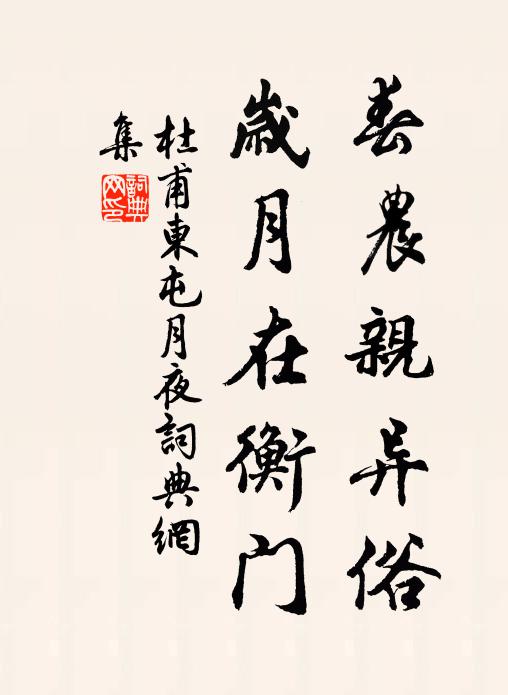 春農親异俗
歲月在衡门
杜甫東屯月夜詞典網
集
詞典網印